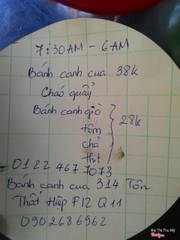 7:30AM - 6AM
Bánh canh cua 38k
Cháo quẩy
Bánh canh giò
tôm
chả
thịt
28k
0122 467 7073
Bánh canh cua 314 Tôn
Thất Hiệp F12 Q11
0902686962